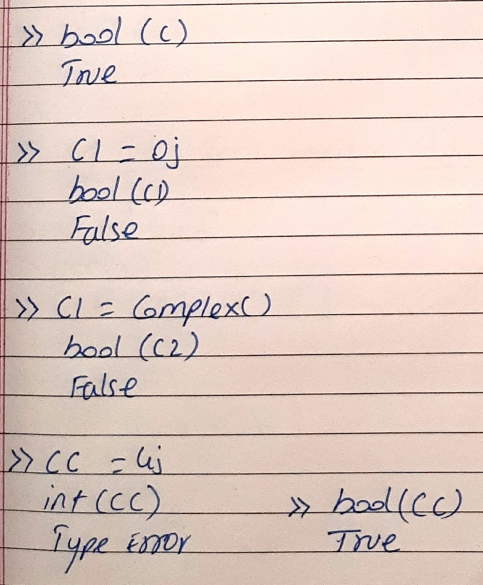 >> bool (C)
True
>> C1 = 0j
bool (C1)
False
>> C1 = Complex()
bool (C2)
False
>> CC = 4j
int (CC)
Type Error
>> bool (CC)
True